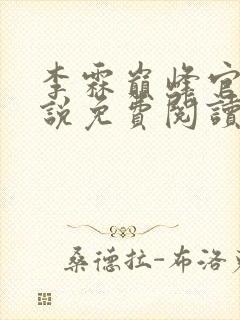 李霖巔峰官
說免費閱讀
桑德拉-布洛克